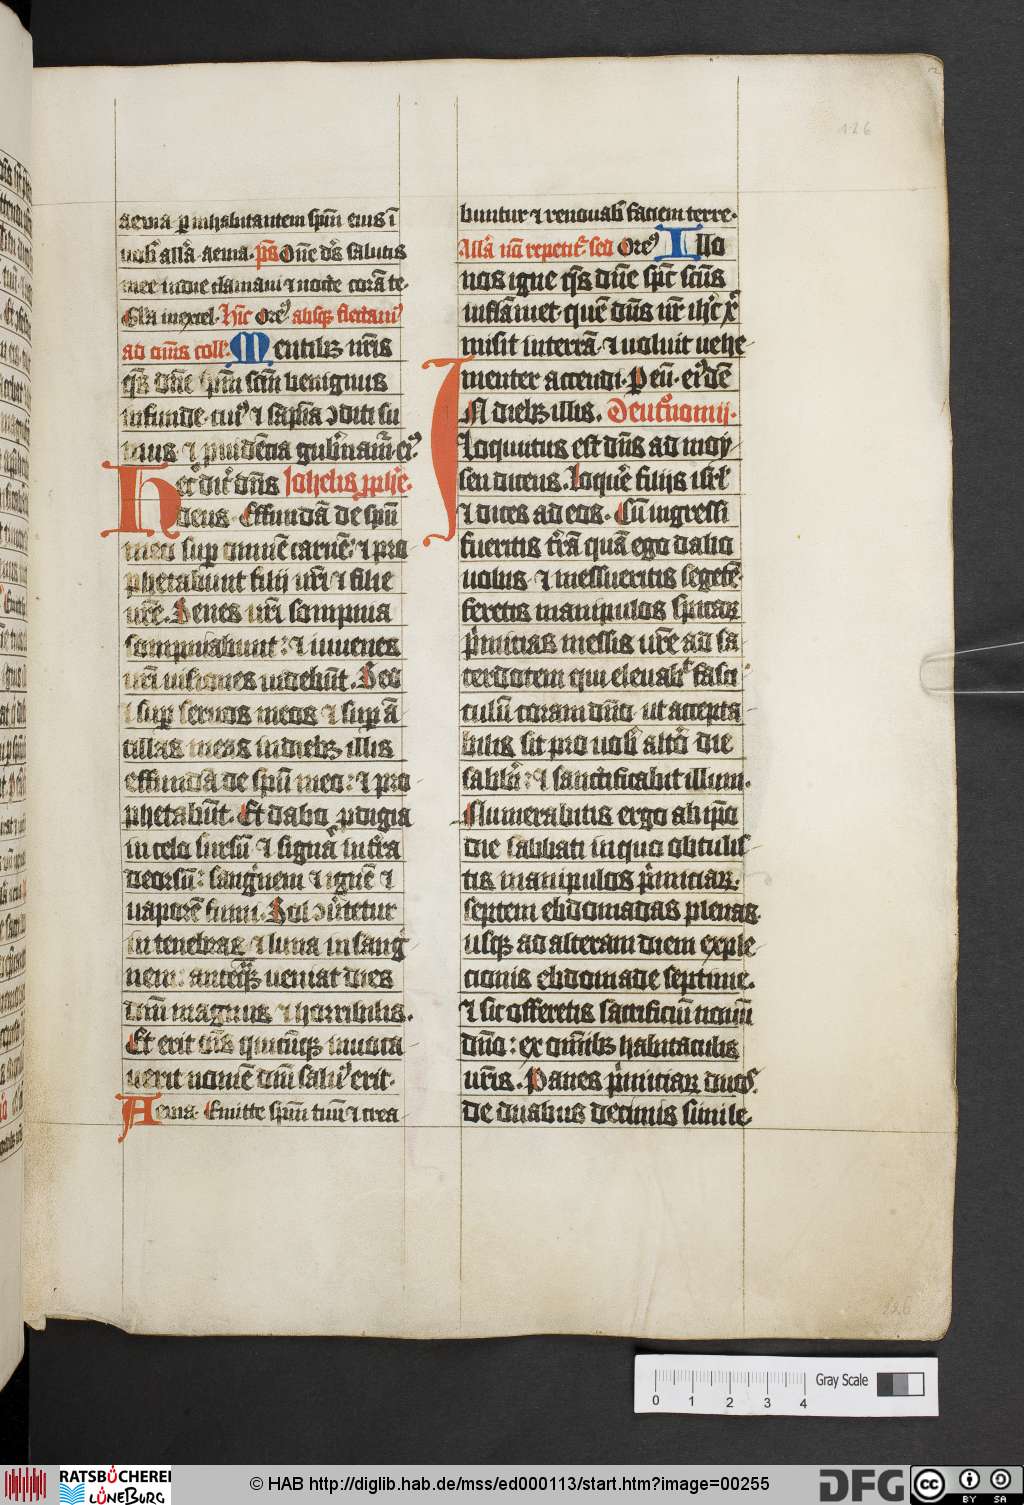 126
aeuia p inhabitantem spm eius i
uob alla aeuia ps One ds salutis
mee in die clamaui ⁊ nocte corā te
Gla in excel. hic Ore absq flectam
ad oms coll. Mentibz nris
qs dne spm scm benignus
infunde. cui ⁊ sapia ɔditi su
mus. ⁊ puidēcia gubnam. ei
Hec dic dns Iohelis pphe.
deus. Effundā de spu
meo sup omnē carnē. ⁊ pro
phetabunt filij uri ⁊ filie
ure. Senes uri sompnia
sompniabunt: ⁊ iuuenes
uri uisiones uidebūt. Sed
⁊ sup seruos meos ⁊ sup ā
cillas meas in diebz illis
effundā de spu meo: ⁊ pro
phetabūt. Et dabo pdigia
in celo sursū ⁊ signa in tra
deorsū: sanguinem ⁊ ignē ⁊
uaporē fumi. Sol ɔuertetur
in tenebras ⁊ luna in sangi
nem: anteqz ueniat dies
dni magnus ⁊ horribilis.
Et erit ois quicūqz inuoca
uerit nomē dni saluus erit.
Aeuia. Emitte spm tuū ⁊ crea
buntur ⁊ renouab faciem terre.
Alla nō repetit. sed Ore Illo
nos igne qs dne spc scūs
inflāmet. quē dns nr ihc xp
misit in terrā. ⁊ uoluit uehe
menter accendi. P eū. ei dē
IN diebz illis. Deutronomij.
Loquutus est dns ad moy
sen dicens. Loquere filijs isrl
⁊ dices ad eos. Cū ingressi
fueritis trā quā ego dabo
uobis. ⁊ messueritis segetē.
feretis manipulos spicar
pmicias messis ure ad sa
cerdotem qui eleuabit fasci
culū coram dno ut accepta
bilis sit pro uob alto die
sabbi: ⁊ sanctificabit illum.
Numerabitis ergo ab ipo
die sabbati in quo obtulis
tis manipulos pmiciar.
septem ebdomadas plenas.
usqz ad alteram diem exple
cionis ebdomade septime.
⁊ sic offeretis sacrificiū nouū
dno: ex omibz habitaculis
uris. Panes pmiciar duos
de duabus decimis simile
126
Gray Scale
0 1 2 3 4
RATSBÜCHEREI
LÜNEBURG
© HAB http://diglib.hab.de/mss/ed000113/start.htm?image=00255
DFG
cc BY SA